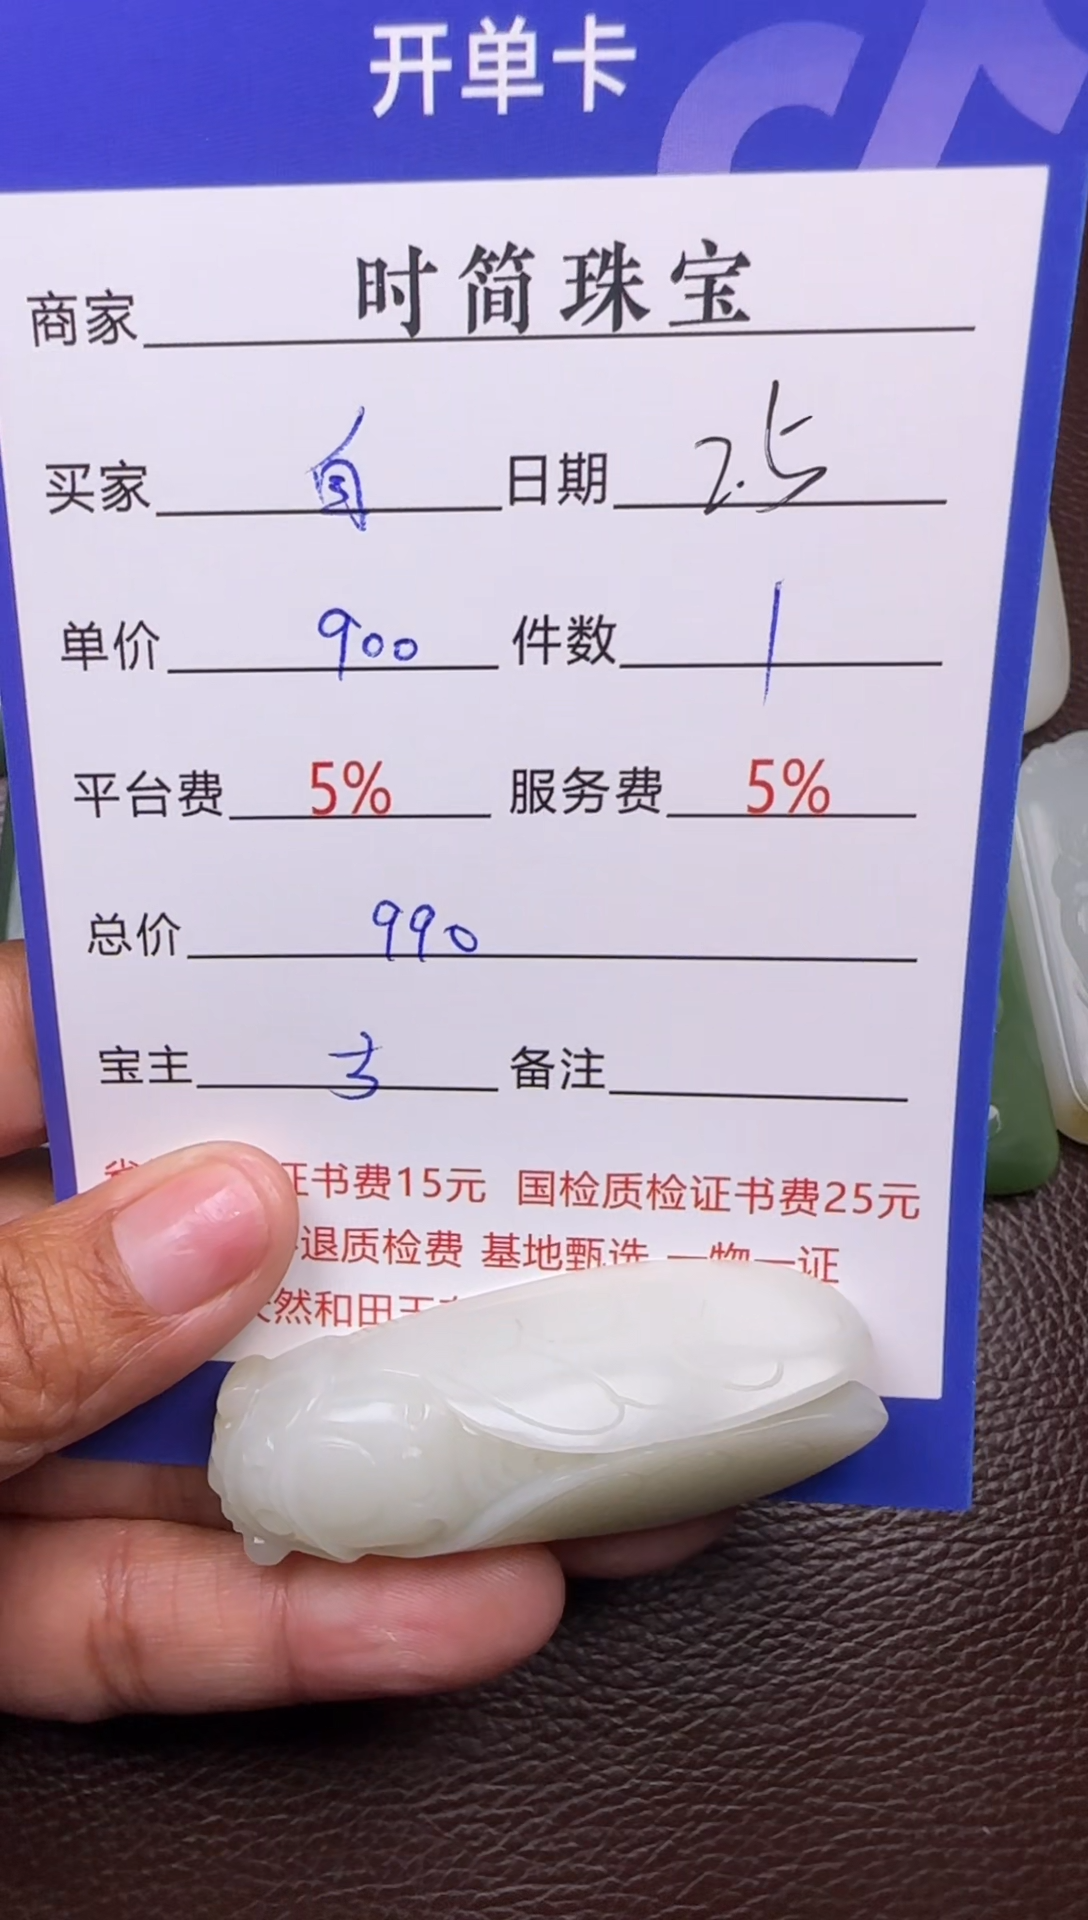 开单卡
商家 时简珠宝
买家 日期 2.5
单价 900 件数 1
平台费 5% 服务费 5%
总价 990
宝主 备注
证书费15元 国检质检证书费25元
退质检费 基地甄选 一物一证
然和田玉